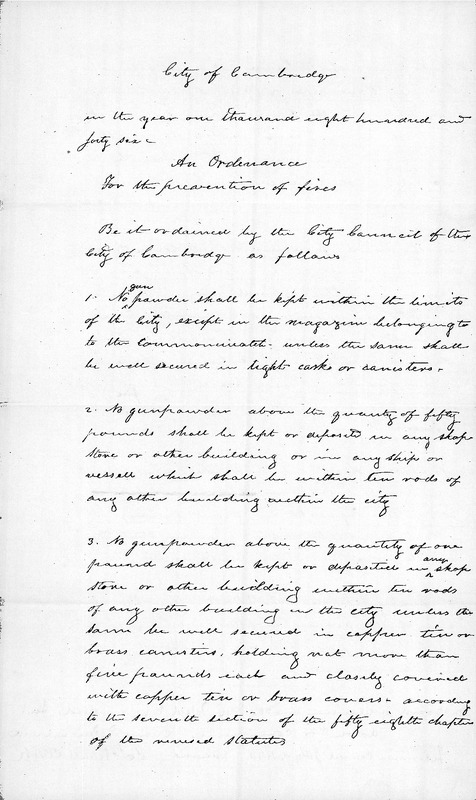 City of Cambridge
in the year one thousand eight hundred and
forty six -
An Ordenance
For the prevention of fires
Be it ordained by the City Council of the
City of Cambridge as follows
1. No gun powder shall be kept within the limits
of the City, except in the magazine belonging to
to the Commonwealth - unless the same shall
be well secured in tight casks or canisters -
2. No gunpowder above the quantity of fifty
pounds shall be kept or deposited in any shop
store or other building or in any ship or
vessell which shall be within ten rods of
any other building within the city
3. No gunpowder above the quantity of one
pound shall be kept or deposited in any shop
store or other building within ten rods
of any other building in the city unless the
same be well secured in copper tin or
brass canisters, holding not more than
five pounds each and closely covered
with copper tin or brass covers - according
to the seventh section of the fifty eighth chapter
of the revised statutes